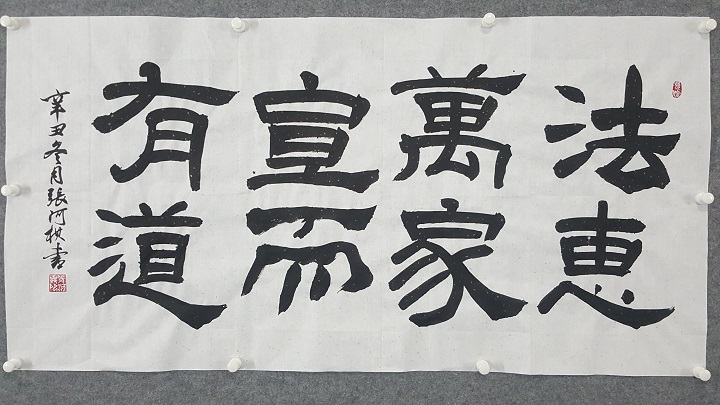 法惠
萬家
宣而
有道
辛丑冬月張河枝書